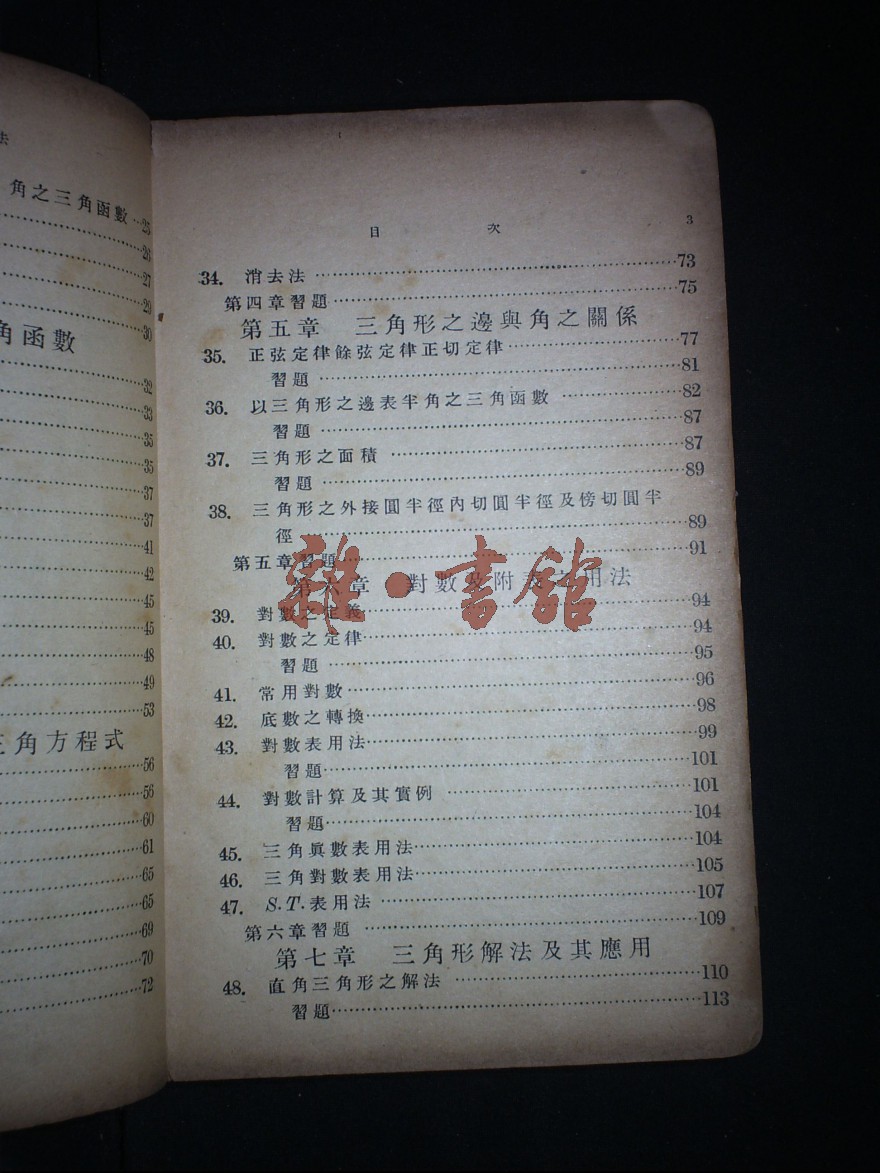 法
角之三角函數…25
26
27
29
30
角函數
32
33
35
35
37
37
41
42
45
45
48
49
53
三角方程式
56
56
60
61
65
65
69
70
72
目 次 3
34. 消去法…73
第四章習題…75
第五章 三角形之邊與角之關係
35. 正弦定律餘弦定律正切定律…77
習題…81
36. 以三角形之邊表半角之三角函數…82
習題…87
37. 三角形之面積…87
習題…89
38. 三角形之外接圓半徑內切圓半徑及傍切圓半
徑…89
第五章習題…91
第六章 對數及附表之用法
39. 對數之定義…94
40. 對數之定律…94
習題…95
41. 常用對數…96
42. 底數之轉換…98
43. 對數表用法…99
習題…101
44. 對數計算及其實例…101
習題…104
45. 三角眞數表用法…104
46. 三角對數表用法…105
47. S.T.表用法…107
第六章習題…109
第七章 三角形解法及其應用
48. 直角三角形之解法…110
習題…113
雜·書館